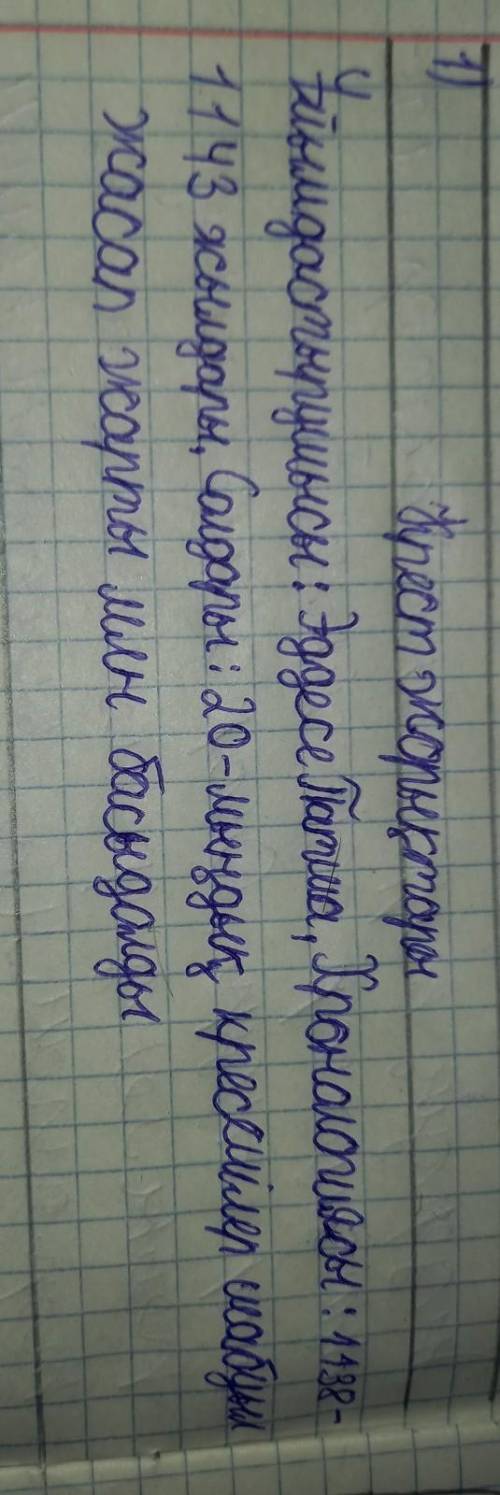 1)
Крест жорықтары
Ұйымдастырушысы: Эддесе Патша, Хронологиясы: 1138-
1143 жылдары, Салдары: 20-мыңдық крескшілер шабуыл
жасап жарты млн басыдалды